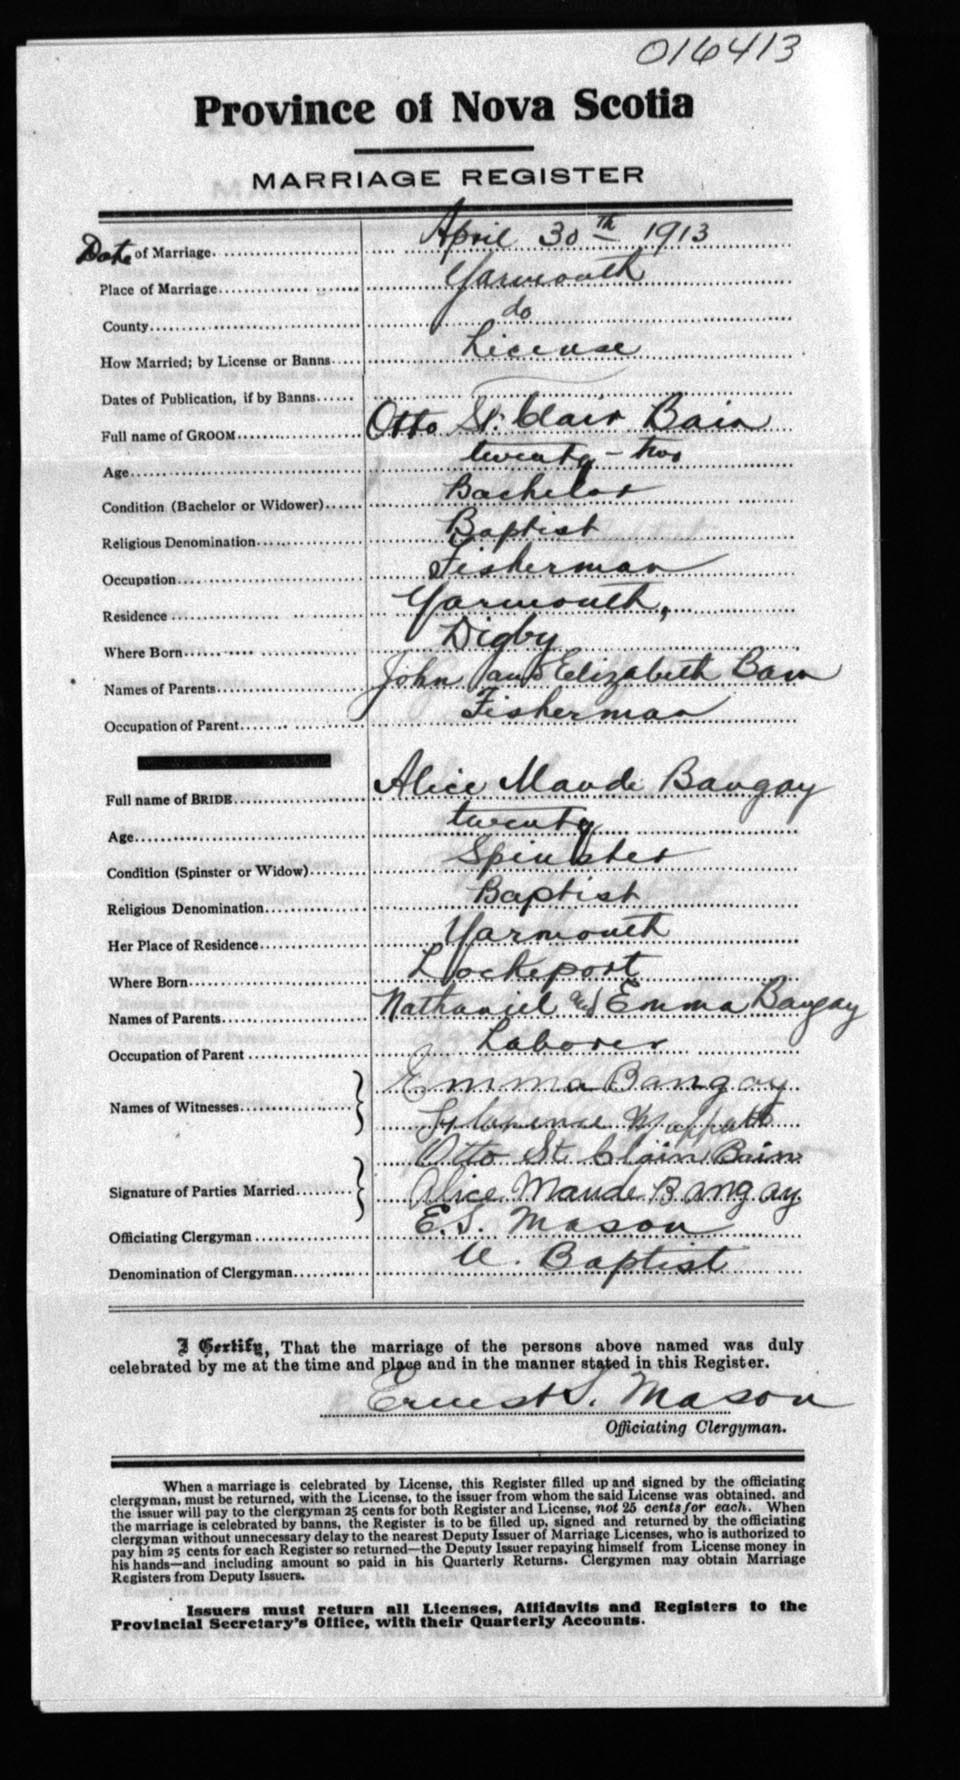 016413
Province of Nova Scotia
MARRIAGE REGISTER
Date of Marriage April 30th 1913
Place of Marriage Yarmouth
County do
How Married; by License or Banns License
Dates of Publication, if by Banns
Full name of GROOM Otto St. Clair Bain
Age twenty-two
Condition (Bachelor or Widower) Bachelor
Religious Denomination Baptist
Occupation Fisherman
Residence Yarmouth,
Where Born Digby
Names of Parents John and Elizabeth Bain
Occupation of Parent Fisherman
Full name of BRIDE Alice Maude Bangay
Age twenty
Condition (Spinster or Widow) Spinster
Religious Denomination Baptist
Her Place of Residence Yarmouth
Where Born Lockeport
Names of Parents Nathaniel and Emma Bangay
Occupation of Parent Laborer
Emma Bangay
Names of Witnesses
Otto St Clair Bain
Signature of Parties Married Alice Maude Bangay.
Officiating Clergyman E.S. Mason
Denomination of Clergyman U. Baptist
I Certify, That the marriage of the persons above named was duly
celebrated by me at the time and place and in the manner stated in this Register.
Ernest S. Mason
Officiating Clergyman.
When a marriage is celebrated by License, this Register filled up and signed by the officiating
clergyman, must be returned, with the License, to the issuer from whom the said License was obtained, and
the issuer will pay to the clergyman 25 cents for both Register and License, not 25 cents for each. When
the marriage is celebrated by banns, the Register is to be filled up, signed and returned by the officiating
clergyman without unnecessary delay to the nearest Deputy Issuer of Marriage Licenses, who is authorized to
pay him 25 cents for each Register so returned—the Deputy Issuer repaying himself from License money in
his hands—and including amount so paid in his Quarterly Returns. Clergymen may obtain Marriage
Registers from Deputy Issuers.
Issuers must return all Licenses, Affidavits and Registers to the
Provincial Secretary's Office, with their Quarterly Accounts.